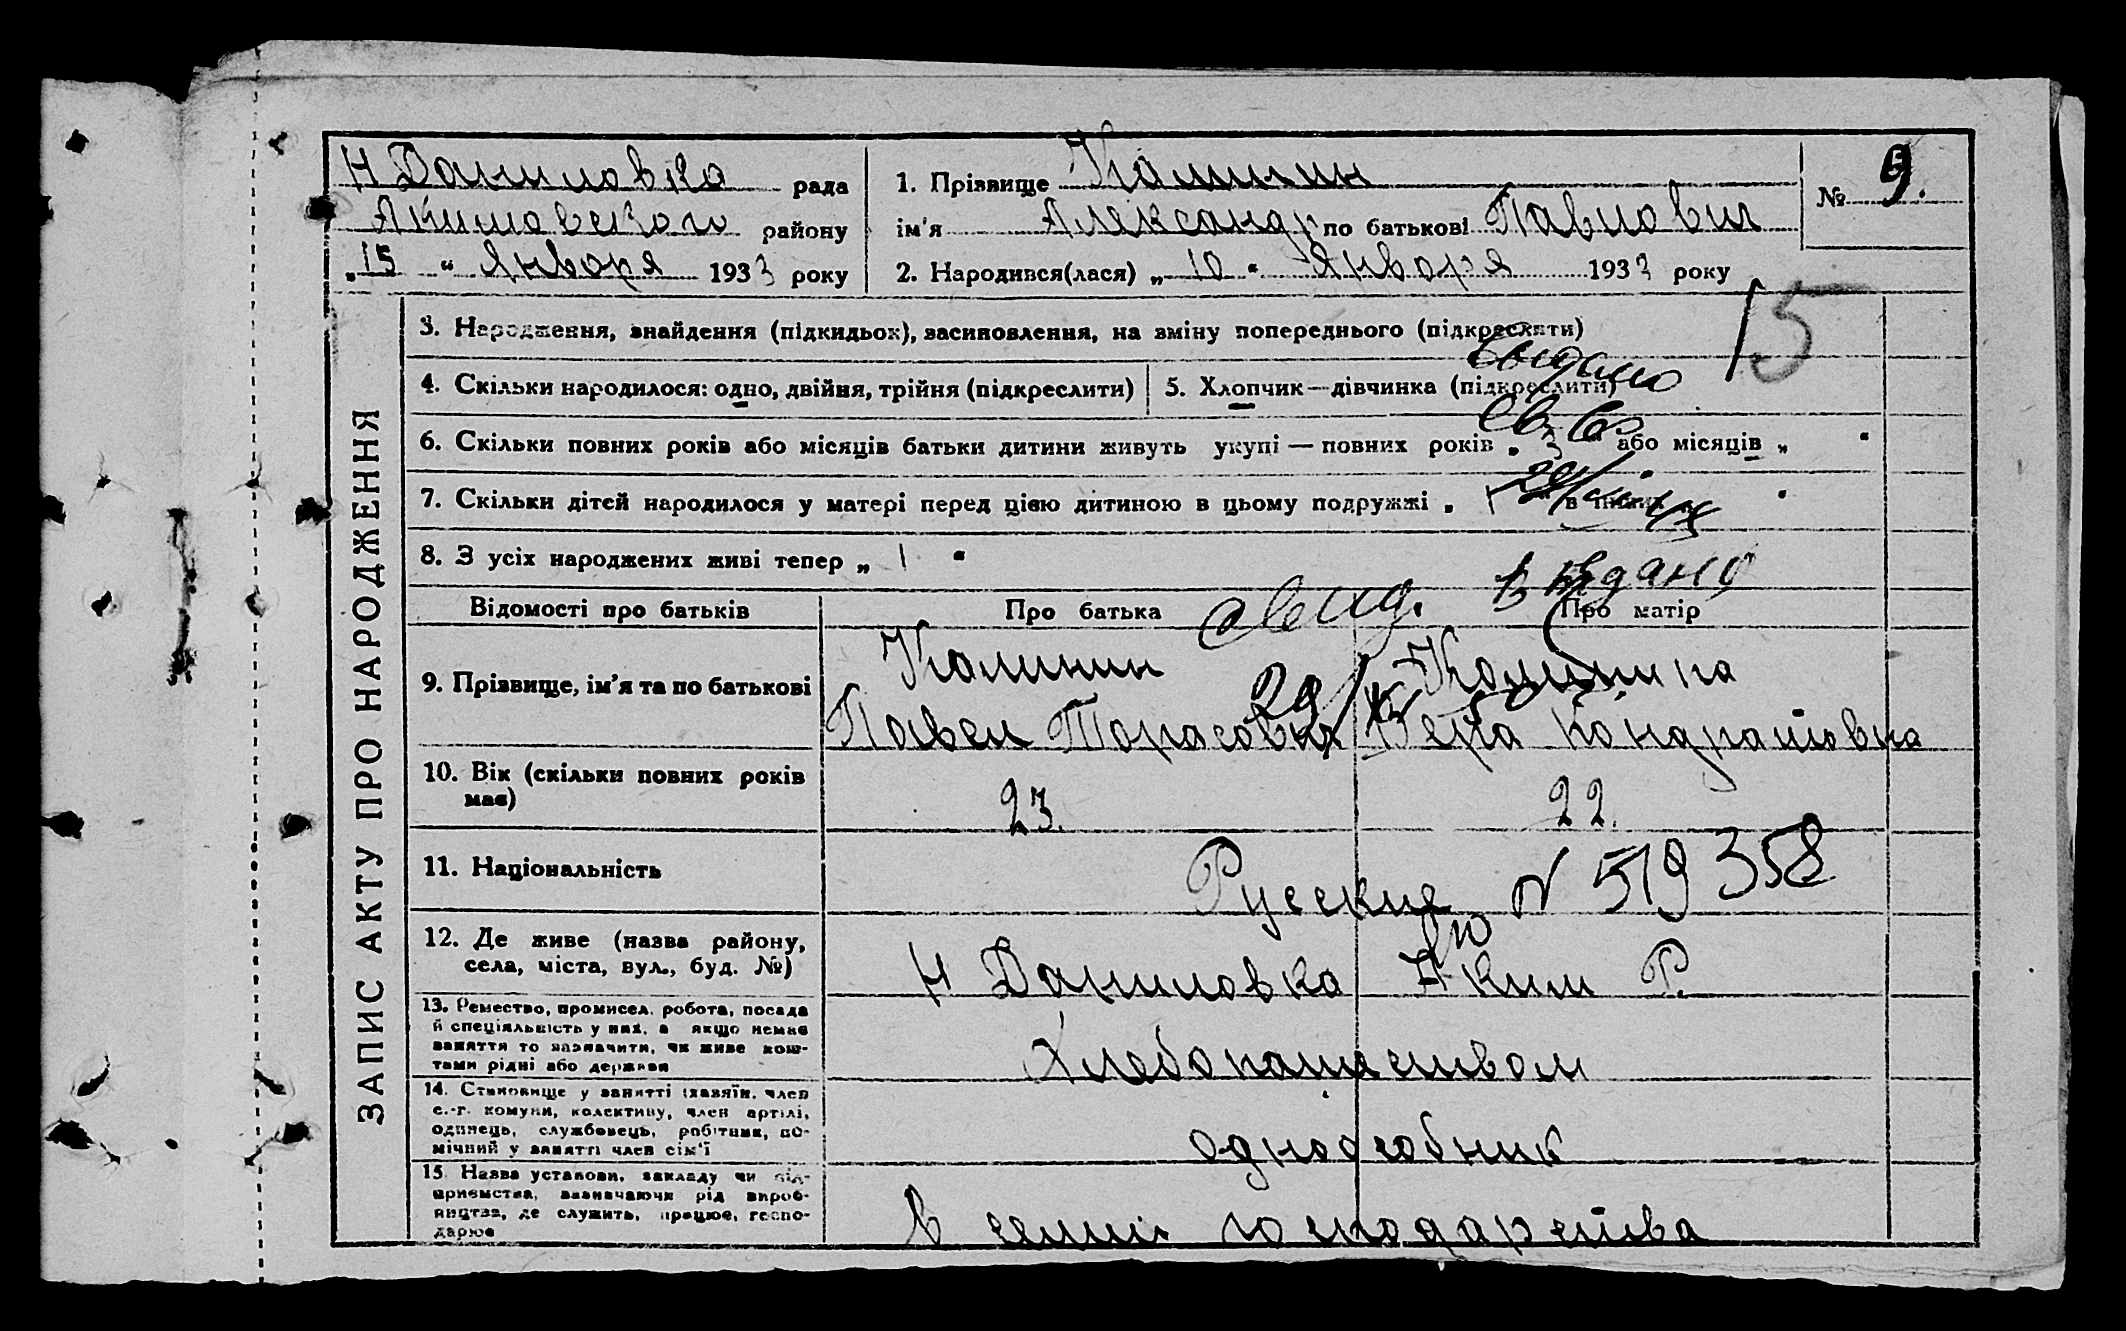 Н Даниловка рада
Акимовского району
„15 “ Января 1933 року
1. Прізвище Калинин
ім'я Александр по батькові Павлович
2. Народився(лася) „ 10 “ Января 1933 року
№ 9.
15
ЗАПИС АКТУ ПРО НАРОДЖЕННЯ
3. Народження, знайдення (підкидьок), засиновлення, на зміну попереднього (підкреслити)
Выдано
4. Скільки народилося: одно, двійня, трійня (підкреслити)
5. Хлопчик—дівчинка (підкреслити)
6. Скільки повних років або місяців батьки дитини живуть укупі — повних років „ 3 “ або місяців „ “
7. Скільки дітей народилося у матері перед цією дитиною в цьому подружжі „ 1 “ в інших „ “
8. З усіх народжених живі тепер „ 1 “
свид. выдано
Відомості про батьків Про батька Про матір
9. Прізвище, ім'я та по батькові
Калинин
Павел Тарасович
Калинина
Вера Кондратовна
10. Вік (скільки повних років має)
23. 22.
11. Національність
Русские N 519358
12. Де живе (назва району,
села, міста, вул., буд. №)
Н Даниловка Аким Р.
13. Ремество, промисел, робота, посада
й спеціяльність у них, а якщо немає
заняття то зазначити, чи живе кош-
тами рідні або держави
Хлебопашеством
14. Становище у занятті (хазяїн, член
с.-г. комуни, колективу, член артілі,
одинець, службовець, робітник, по-
мічний у занятті член сім'ї
одноособник
15. Назва установи, закладу чи під-
приємства, зазначаючи рід вироб-
ництва, де служить, працює, госпо-
дарює
В семии господарства